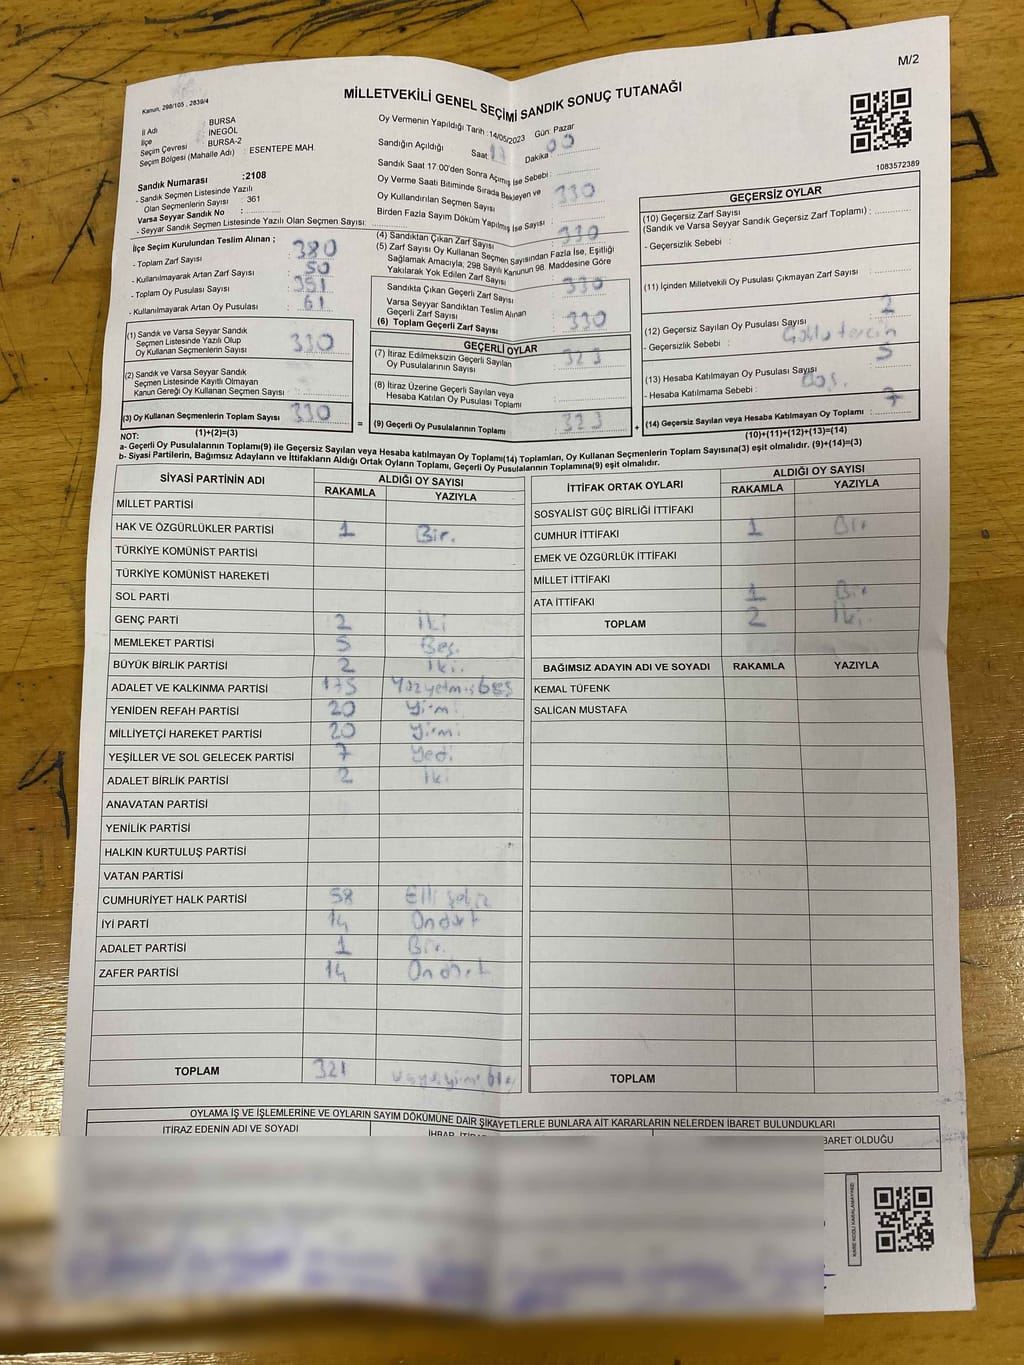 M/2
Kanun, 298/105 . 2839/4
MİLLETVEKİLİ GENEL SEÇİMİ SANDIK SONUÇ TUTANAĞI
1083572389
İl Adı : BURSA
İlçe : İNEGÖL
Seçim Çevresi : BURSA-2
Seçim Bölgesi (Mahalle Adı) : ESENTEPE MAH.
Sandık Numarası :2108
- Sandık Seçmen Listesinde Yazılı
Olan Seçmenlerin Sayısı : 361
Varsa Seyyar Sandık No :
- Seyyar Sandık Listesinde Yazılı Olan Seçmen Sayısı:
Oy Vermenin Yapıldığı Tarih :14/05/2023 Gün: Pazar
Sandığın Açıldığı Saat Dakika 00
Sandık Saat 17:00'den Sonra Açılmış İse Sebebi :
Oy Verme Saati Bitiminde Sırada Bekleyen ve
Oy Kullandırılan Seçmen Sayısı : 330
Birden Fazla Sayım Döküm Yapılmış İse Sayısı :
İlçe Seçim Kurulundan Teslim Alınan ;
- Toplam Zarf Sayısı : 380
- Kullanılmayarak Artan Zarf Sayısı : 50
- Toplam Oy Pusulası Sayısı : 351
- Kullanılmayarak Artan Oy Pusulası : 61
(1) Sandık ve Varsa Seyyar Sandık
Seçmen Listesinde Yazılı Olup
Oy Kullanan Seçmenlerin Sayısı : 330
(2) Sandık ve Varsa Seyyar Sandık
Seçmen Listesinde Kayıtlı Olmayan
Kanun Gereği Oy Kullanan Seçmen Sayısı :
(3) Oy Kullanan Seçmenlerin Toplam Sayısı : 330
(1)+(2)=(3)
(4) Sandıktan Çıkan Zarf Sayısı : 330
(5) Zarf Sayısı Oy Kullanan Seçmen Sayısından Fazla İse, Eşitliği
Sağlamak Amacıyla, 298 Sayılı Kanunun 98. Maddesine Göre
Yakılarak Yok Edilen Zarf Sayısı :
Sandıkta Çıkan Geçerli Zarf Sayısı : 330
Varsa Seyyar Sandıktan Teslim Alınan
Geçerli Zarf Sayısı :
(6) Toplam Geçerli Zarf Sayısı : 330
GEÇERLİ OYLAR
(7) İtiraz Edilmeksizin Geçerli Sayılan
Oy Pusulalarının Sayısı : 323
(8) İtiraz Üzerine Geçerli Sayılan veya
Hesaba Katılan Oy Pusulası Toplamı :
= (9) Geçerli Oy Pusulalarının Toplamı : 323 +
GEÇERSİZ OYLAR
(10) Geçersiz Zarf Sayısı
(Sandık ve Varsa Seyyar Sandık Geçersiz Zarf Toplamı) :
- Geçersizlik Sebebi :
(11) İçinden Milletvekili Oy Pusulası Çıkmayan Zarf Sayısı :
(12) Geçersiz Sayılan Oy Pusulası Sayısı : 2
- Geçersizlik Sebebi : Çoklu tercih
(13) Hesaba Katılmayan Oy Pusulası Sayısı : 5
- Hesaba Katılmama Sebebi : Boş.
(14) Geçersiz Sayılan veya Hesaba Katılmayan Oy Toplamı : 7
(10)+(11)+(12)+(13)=(14)
NOT:
a- Geçerli Oy Pusulalarının Toplamı(9) ile Geçersiz Sayılan veya Hesaba katılmayan Oy Toplamı(14) Toplamları, Oy Kullanan Seçmenlerin Toplam Sayısına(3) eşit olmalıdır. (9)+(14)=(3)
b- Siyasi Partilerin, Bağımsız Adayların ve İttifakların Aldığı Ortak Oyların Toplamı, Geçerli Oy Pusulalarının Toplamına(9) eşit olmalıdır.
SİYASİ PARTİNİN ADI ALDIĞI OY SAYISI
RAKAMLA YAZIYLA
MİLLET PARTİSİ
HAK VE ÖZGÜRLÜKLER PARTİSİ 1 Bir.
TÜRKİYE KOMÜNİST PARTİSİ
TÜRKİYE KOMÜNİST HAREKETİ
SOL PARTİ
GENÇ PARTİ 2 İki
MEMLEKET PARTİSİ 5 Beş.
BÜYÜK BİRLİK PARTİSİ 2 İki.
ADALET VE KALKINMA PARTİSİ 175 Yüzyetmişbeş
YENİDEN REFAH PARTİSİ 20 Yirmi
MİLLİYETÇİ HAREKET PARTİSİ 20 Yirmi
YEŞİLLER VE SOL GELECEK PARTİSİ 7 Yedi
ADALET BİRLİK PARTİSİ 2 İki
ANAVATAN PARTİSİ
YENİLİK PARTİSİ
HALKIN KURTULUŞ PARTİSİ
VATAN PARTİSİ
CUMHURİYET HALK PARTİSİ 58 Elli sekiz
İYİ PARTİ 14 Ondört
ADALET PARTİSİ 1 Bir.
ZAFER PARTİSİ 14 Ondört
TOPLAM 321
İTTİFAK ORTAK OYLARI ALDIĞI OY SAYISI
RAKAMLA YAZIYLA
SOSYALİST GÜÇ BİRLİĞİ İTTİFAKI
CUMHUR İTTİFAKI 1 Bir
EMEK VE ÖZGÜRLÜK İTTİFAKI
MİLLET İTTİFAKI
ATA İTTİFAKI 1 Bir
TOPLAM 2 İki.
BAĞIMSIZ ADAYIN ADI VE SOYADI RAKAMLA YAZIYLA
KEMAL TÜFENK
SALİCAN MUSTAFA
TOPLAM
OYLAMA İŞ VE İŞLEMLERİNE VE OYLARIN SAYIM DÖKÜMÜNE DAİR ŞİKAYETLERLE BUNLARA AİT KARARLARIN NELERDEN İBARET BULUNDUKLARI
İTİRAZ EDENİN ADI VE SOYADI
BARET OLDUĞU
KARE KODU KARALAMAYINIZ!